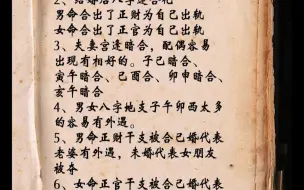 男命合出了正财为自己出轨
女命合出了正官为自己出轨
3、夫妻宫逢暗合，配偶容易
出现有相好的。子巳暗合、
寅午暗合、巳酉合、卯申暗合、
亥午暗合
4、男女八字地支子午卯酉太多
的容易有外遇。
5、男命正财干支被合已婚代表
老婆有外遇，未婚代表女朋友
被夺
6、女命正官干支被合已婚代表